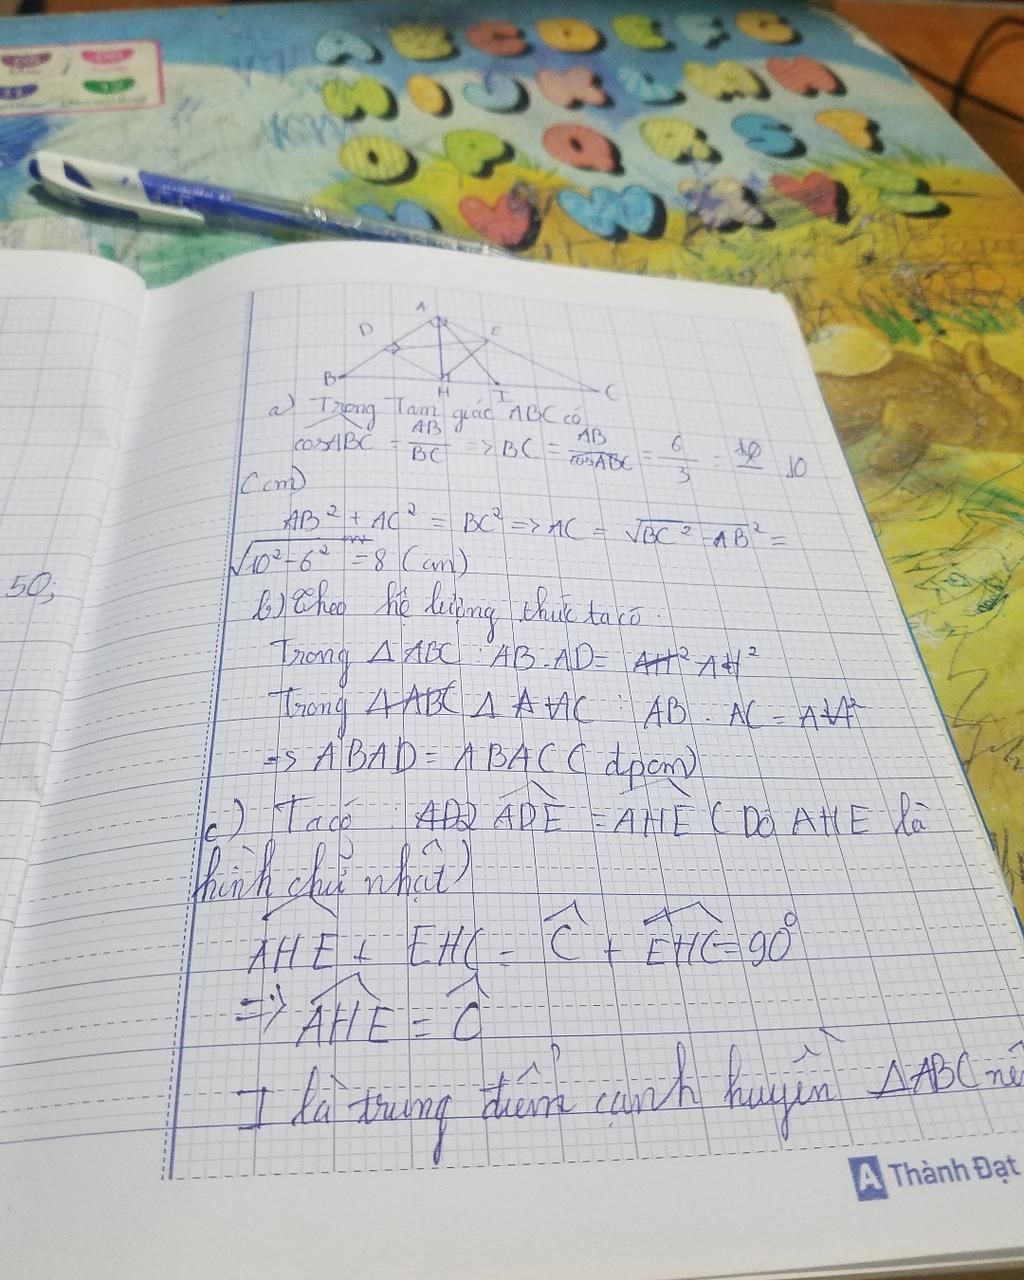 A B C D E F G
H I J K L M N
O P Q R S T
U V W X Y Z
50;
A
D
E
B
H
I
C
a) Trong Tam giác ABC có
cosABC = AB/BC => BC = AB/cosABC = 6/3 = 10
(cm)
AB² + AC² = BC² => AC = √BC² - AB² =
√10² - 6² = 8 (cm)
b) Theo hệ lượng thức ta có:
Trong △ ABC : AB . AD = AH² AH²
Trong △ABC △ AHC : AB . AC = AH²
=> ABAD = ABAC (đpcm)
c) Ta có : ADE = AHE (Do AHE là
hình chữ nhật)
AHE + EHC = C + EHC = 90°
=> AHE = C
I là trung điểm cạnh huyền △ABC nê
A Thành Đạt